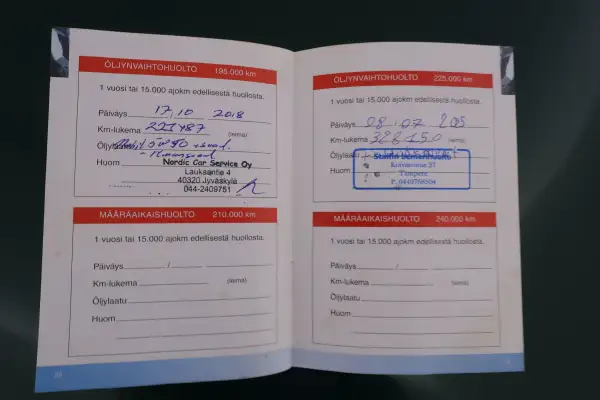 ÖLJYNVAIHTOHUOLTO 195.000 km
1 vuosi tai 15.000 ajokm edellisestä huollosta.
Päiväys 17 / 10 2018
Km-lukema 221487 (leima)
Öljylaatu 5w40
Huom
Nordic Car Service Oy
Laukaantie 4
40320 Jyväskylä
044-2409751
MÄÄRÄAIKAISHUOLTO 210.000 km
1 vuosi tai 15.000 ajokm edellisestä huollosta.
Päiväys /
Km-lukema (leima)
Öljylaatu
Huom
ÖLJYNVAIHTOHUOLTO 225.000 km
1 vuosi tai 15.000 ajokm edellisestä huollosta.
Päiväys 08 . 07
Km-lukema (leima)
Öljylaatu
Huom
Tampere
MÄÄRÄAIKAISHUOLTO 240.000 km
1 vuosi tai 15.000 ajokm edellisestä huollosta.
Päiväys /
Km-lukema (leima)
Öljylaatu
Huom